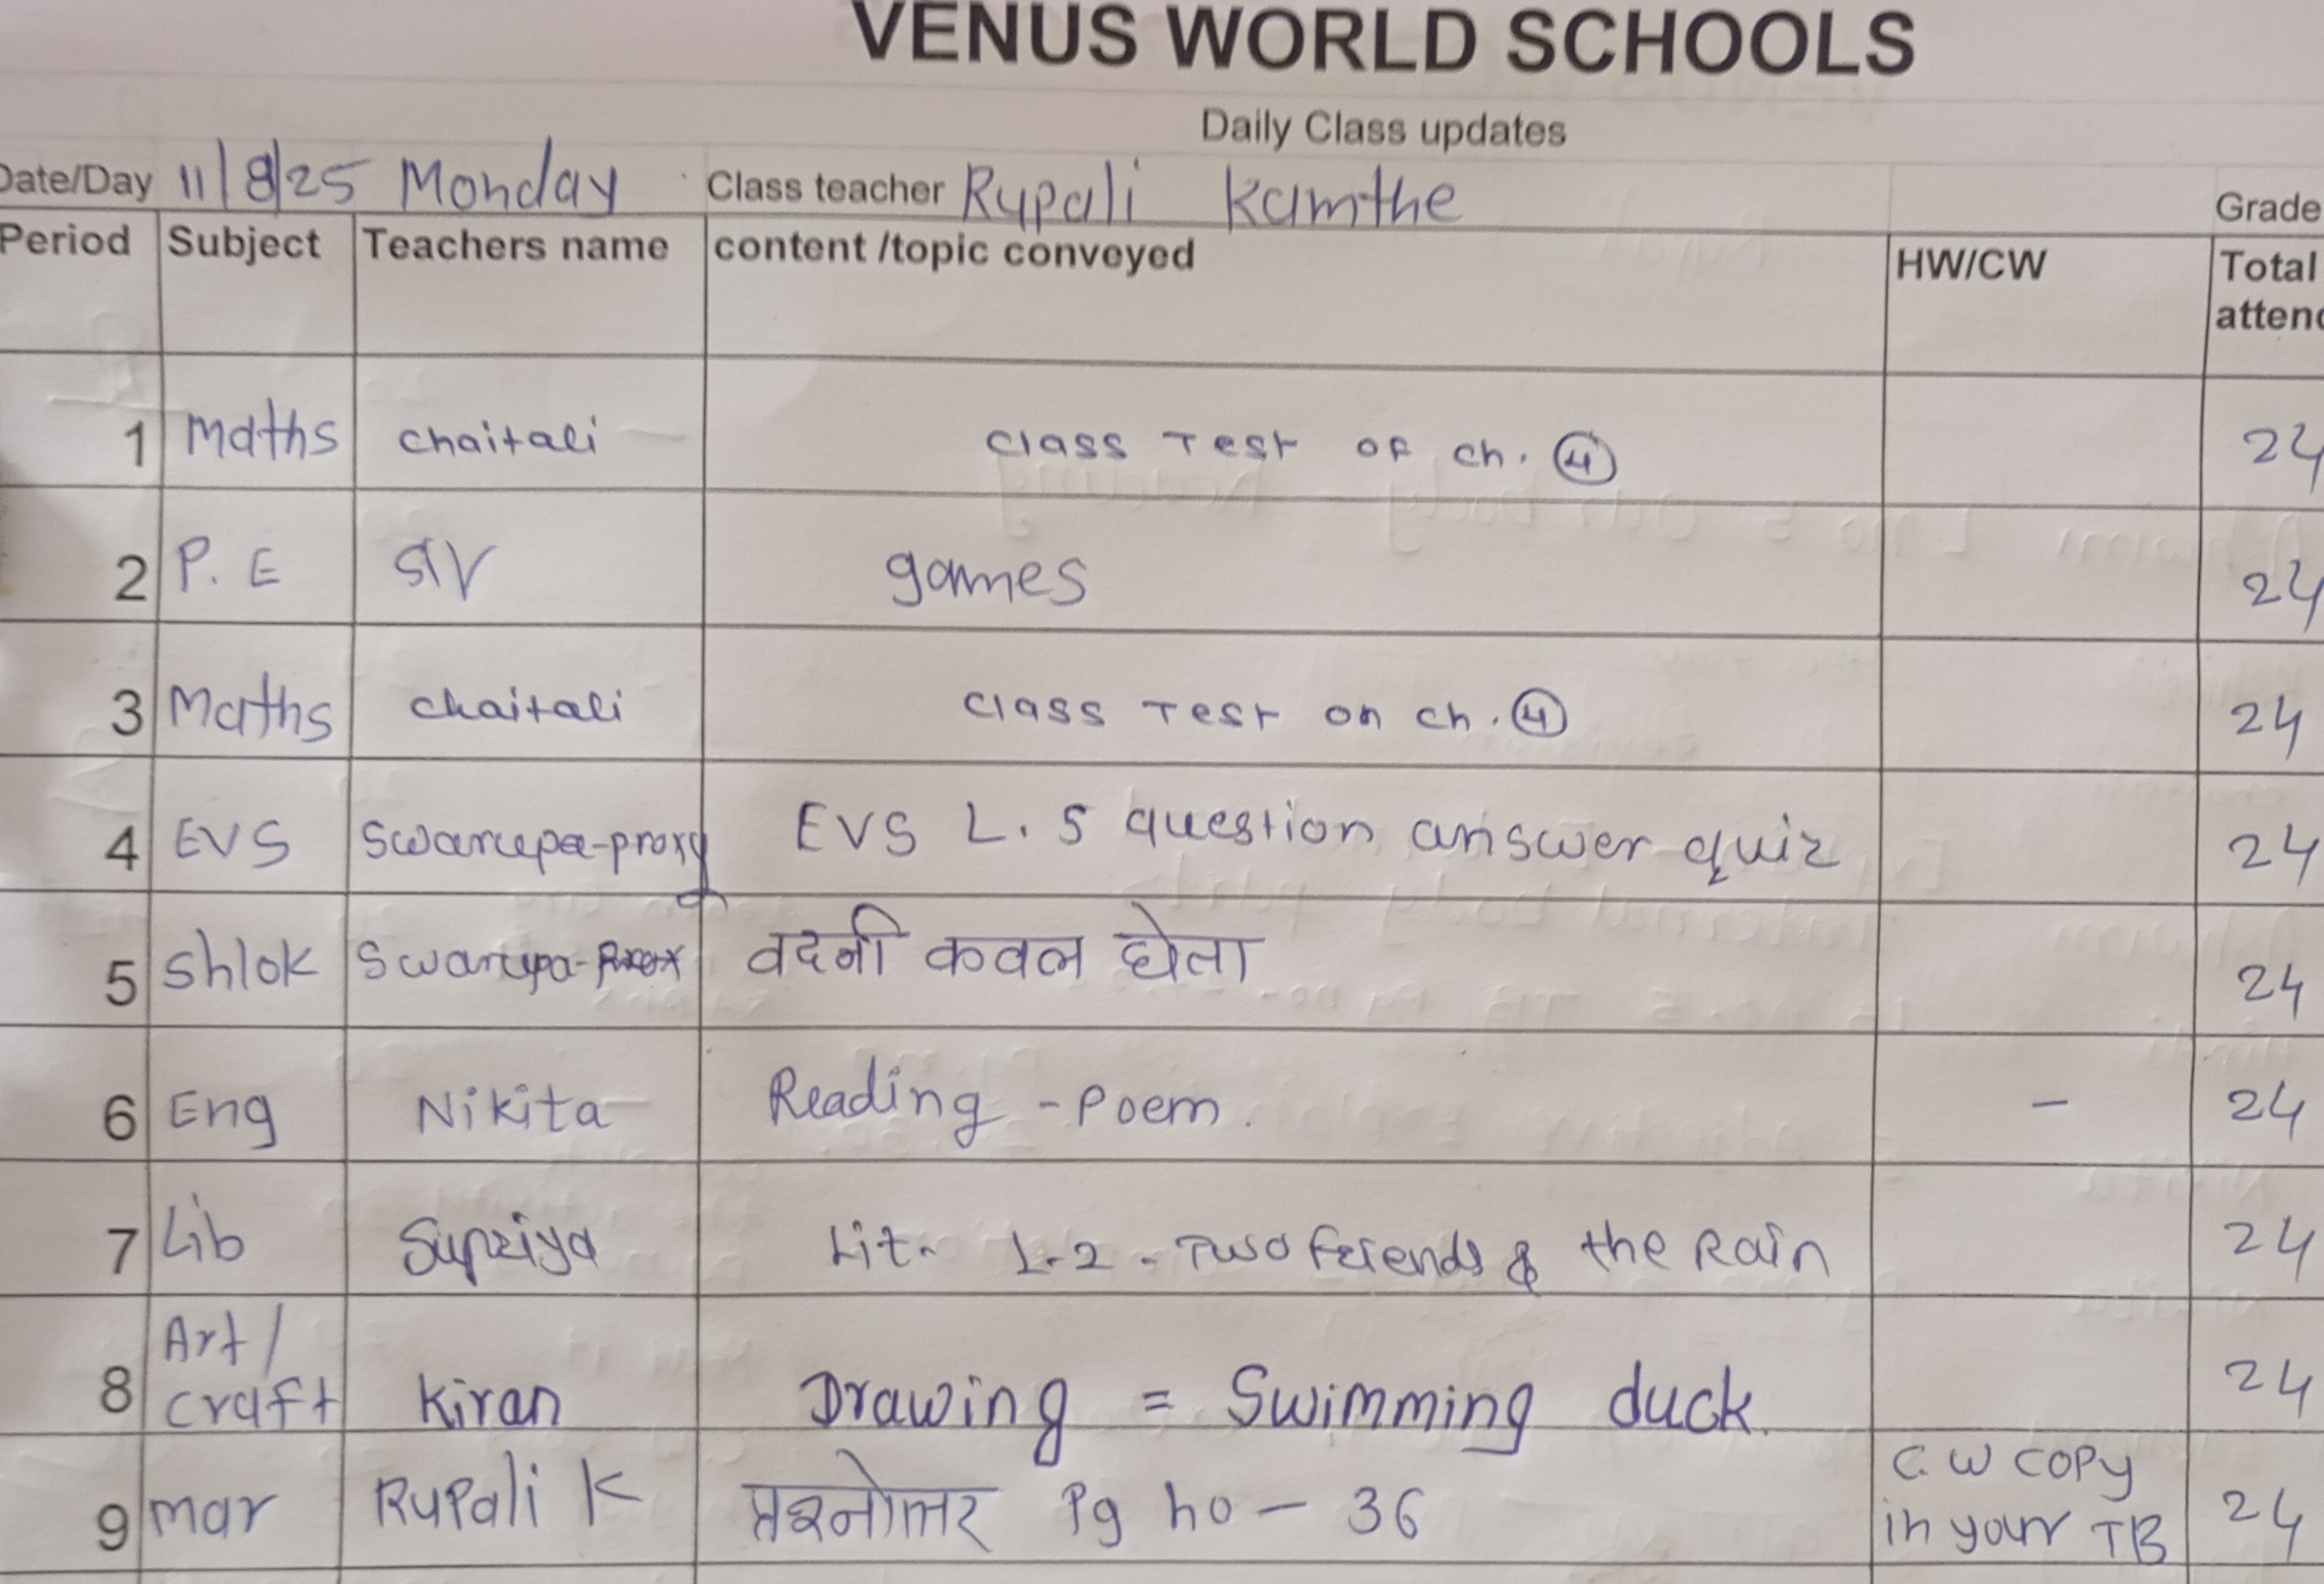 VENUS WORLD SCHOOLS
Daily Class updates
Date/Day 11/8/25 Monday Class teacher Rupali Kamthe Grade
Period Subject Teachers name content /topic conveyed HW/CW Total
attend
1 Maths chaitali class Test of ch. 4 24
2 P. E games 24
3 Maths chaitali class Test on ch. 4 24
4 EVS Swarupa-proxy EVS L. 5 question answer quiz 24
5 Shlok Swarupa- वदनी कवल घेता 24
6 Eng Nikita Reading - Poem. - 24
7 Lib Supriya Lit. L-2 - Two friends & the Rain 24
Art/
8 craft Kiran Drawing = Swimming duck. 24
C.W copy
9 mar Rupali K प्रश्नोत्तर Pg no - 36 in your TB 24